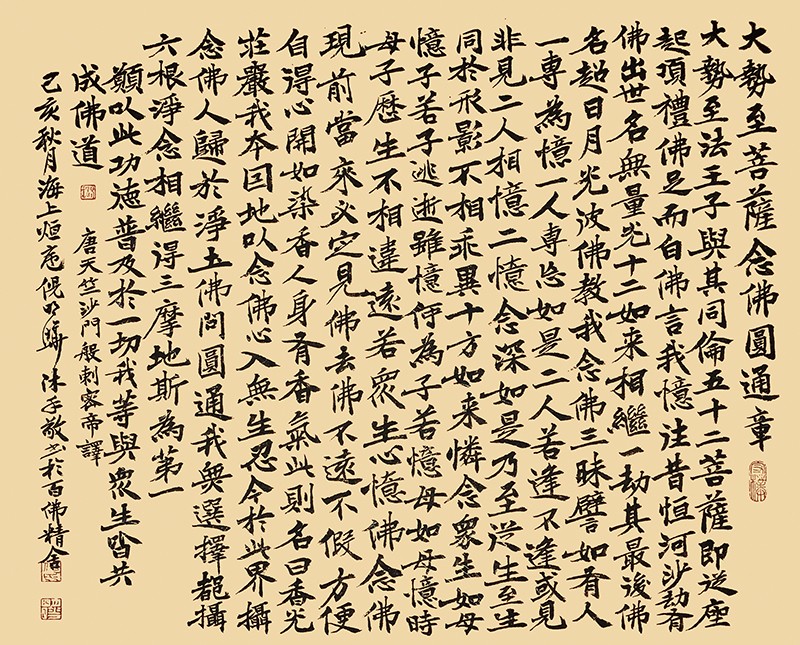 大勢至菩薩念佛圓通章
大勢至法王子與其同倫五十二菩薩即從座
起頂禮佛足而白佛言我憶往昔恒河沙劫有
佛出世名無量光十二如来相繼一劫其最後佛
名超日月光彼佛教我念佛三昧譬如有人
一專為憶一人專忘如是二人若逢不逢或見
非見二人相憶二憶念深如是乃至從生至生
同於形影不相乖異十方如来憐念眾生如母
憶子若子逃逝雖憶何為子若憶母如母憶時
母子歷生不相違遠若眾生心憶佛念佛
現前當來必定見佛去佛不遠不假方便
自得心開如染香人身有香氣此則名曰香光
莊嚴我本因地以念佛心入無生忍今於此界攝
念佛人歸於淨土佛問圓通我無選擇都攝
六根淨念相繼得三摩地斯為第一
願以此功德普及於一切我等與眾生皆共
成佛道
唐天竺沙門般剌密帝譯
己亥秋月海上烜庵倪 沐手敬書於百佛精舍